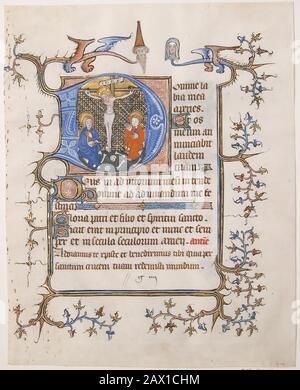 omine la
bia mea
aperies.
Et os
meum an
nunciabit
laudem
tuam.
eus in adiutorium meum intende
omine ad adiuvandum me fe
stina.
Gloria patri et filio et spiritui sancto.
Sicut erat in principio et nunc et sem
per et in secula seculorum amen. antiē
Adoramus te xpiste et benedicimus tibi quia per
sanctam crucem tuam redemisti mundum.
alamy
Image ID: 2AX1CHM
www.alamy.com